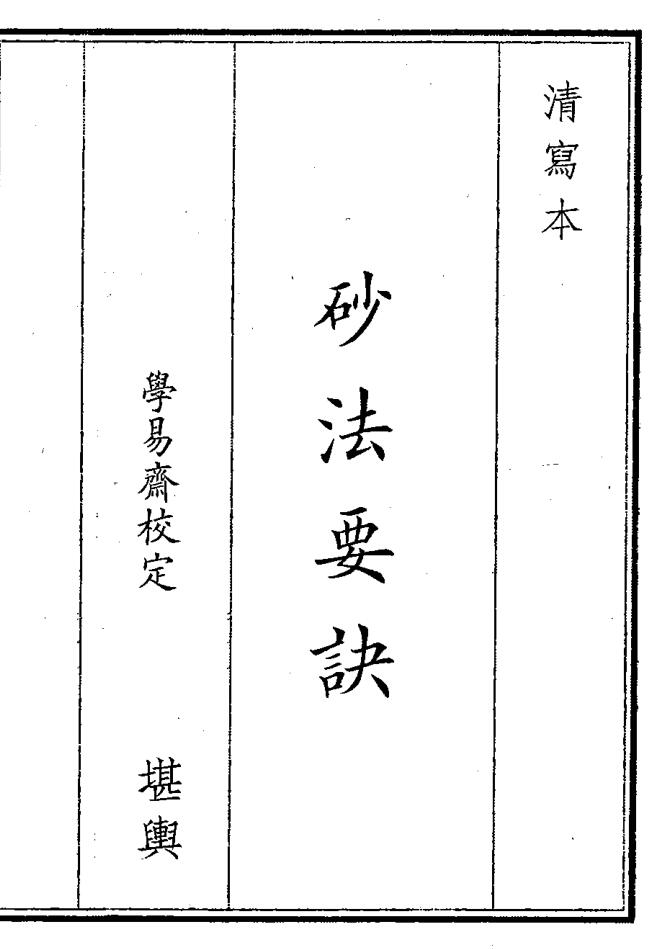 清寫本
砂法要訣
學易齋校定
堪輿